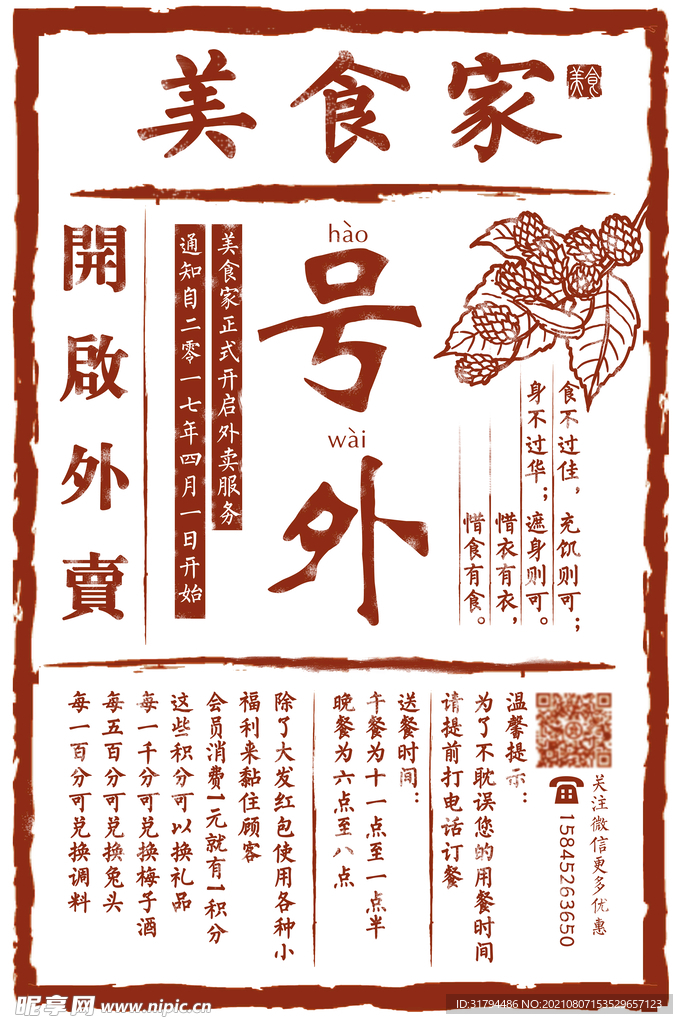 美食家
美食
hào
号
wài
外
食不过佳，充饥则可；
身不过华；遮身则可。
惜衣有衣，
惜食有食。
美食家正式开启外卖服务
通知自二零一七年四月一日开始
開啟外賣
关注微信更多优惠
15845263650
温馨提示：
为了不耽误您的用餐时间
请提前打电话订餐
送餐时间：
午餐为十一点至一点半
晚餐为六点至八点
除了大发红包使用各种小
福利来黏住顾客
会员消费1元就有1积分
这些积分可以换礼品
每一千分可兑换梅子酒
每五百分可兑换兔头
每一百分可兑换调料
昵享网 www.nipic.cn
ID:31794486 NO:20210807153529657123